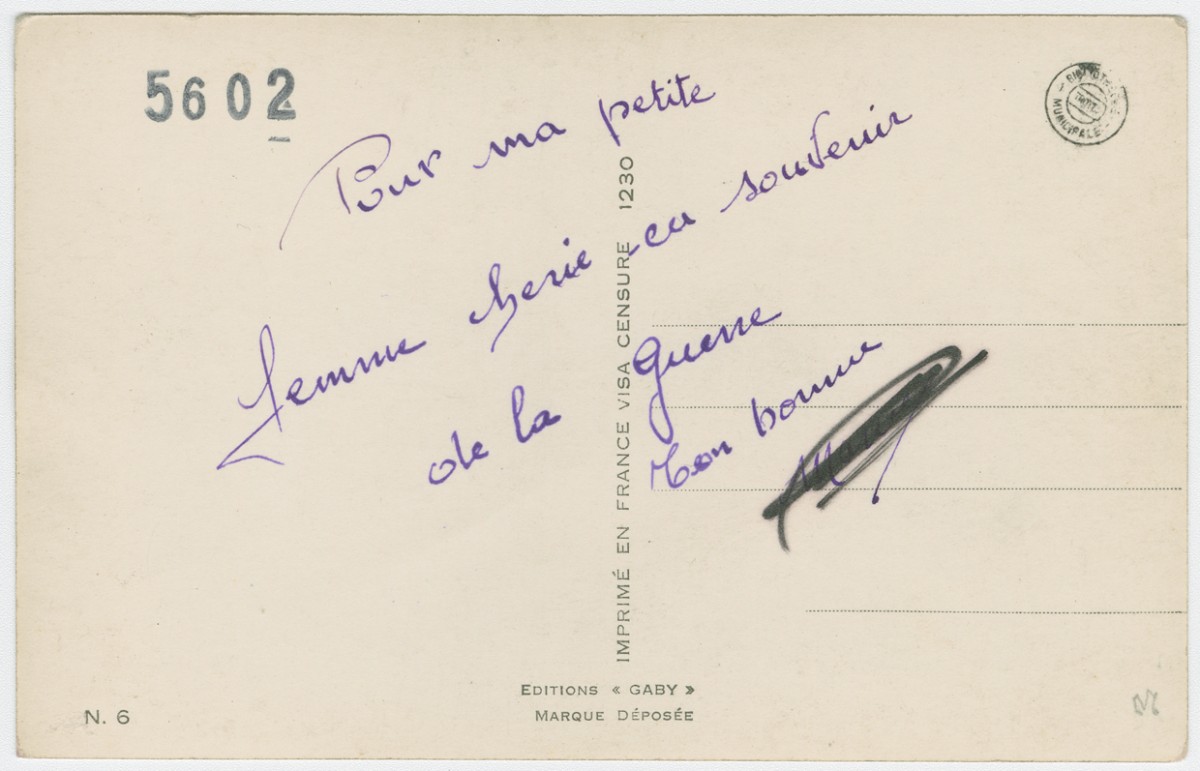 5602
BIBLIOTHEQUE MUNICIPALE
Pour ma petite
femme cherie en souvenir
de la guerre
Ton homme
IMPRIMÉ EN FRANCE VISA CENSURE 1230
EDITIONS « GABY »
MARQUE DÉPOSÉE
N. 6